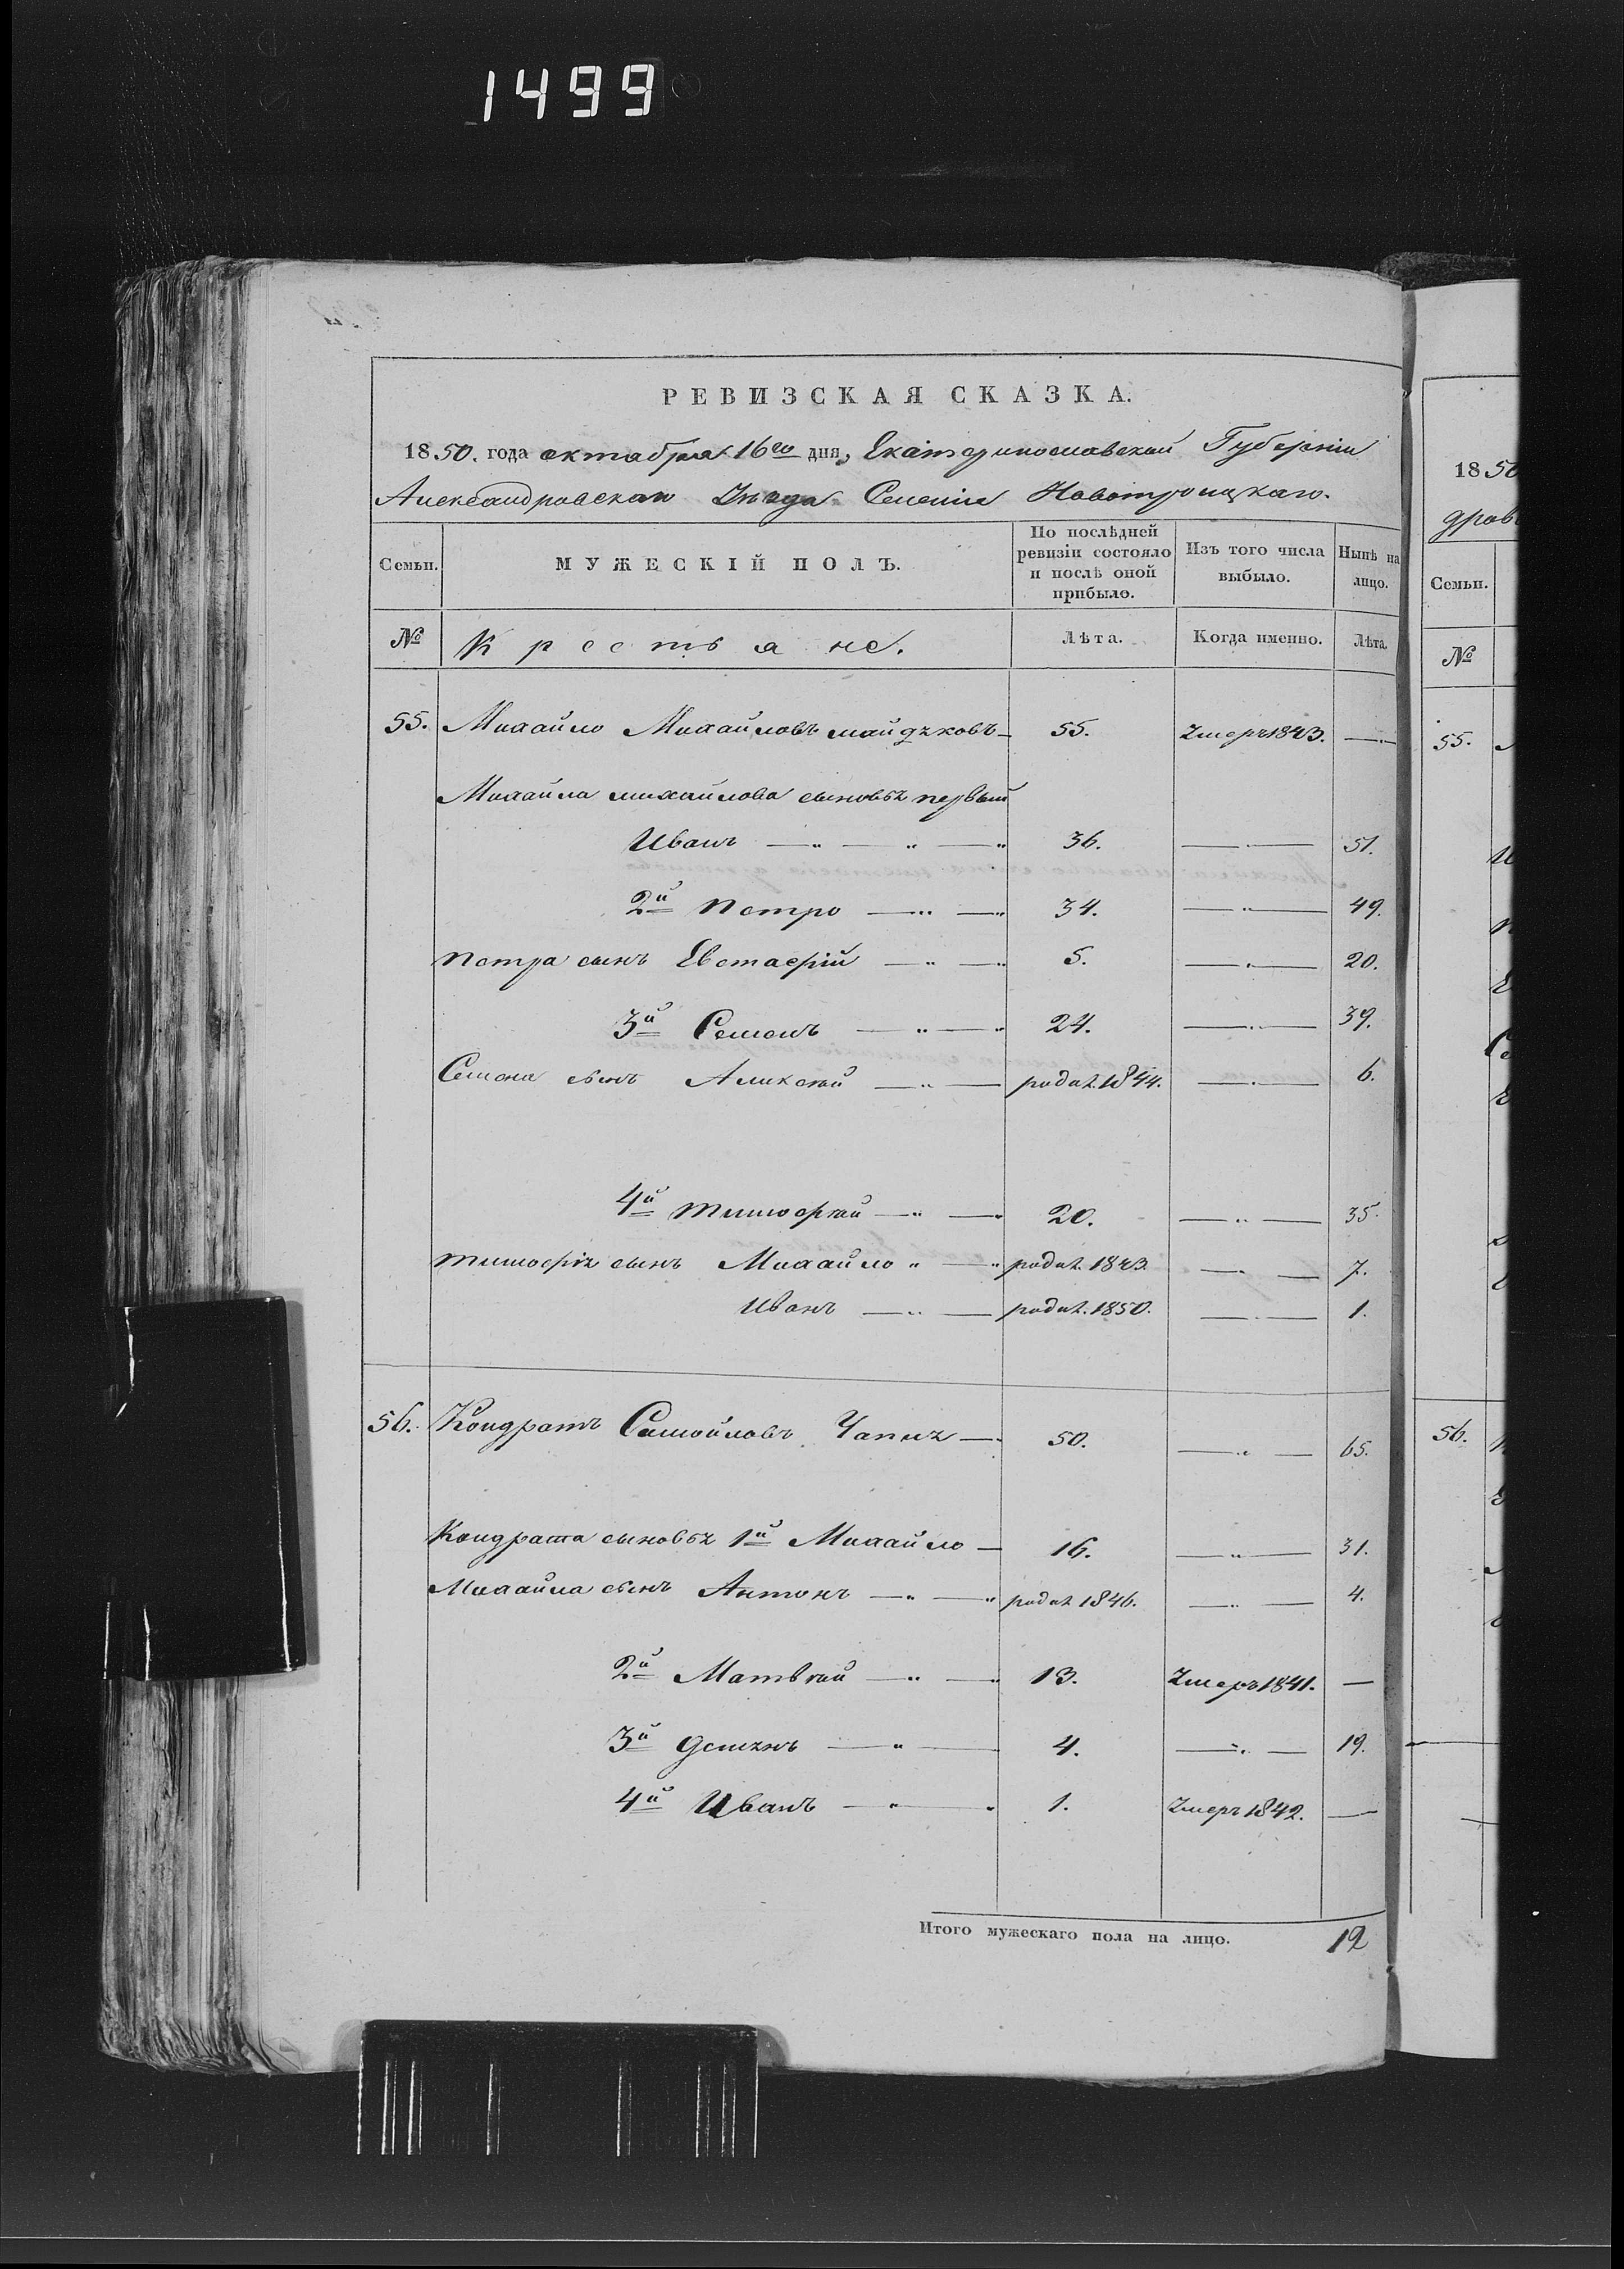 1499
РЕВИЗСКАЯ СКАЗКА.
1850. года октабря 16го дня, Екатеринославской Губернии
Александровскаго Уезда Селения Новотроицкаго.
Семьи. МУЖЕСКІЙ ПОЛЪ. По послѣдней ревизіи состояло и послѣ оной прибыло. Изъ того числа выбыло. Нынѣ на лицо.
№ Крестьяне. Лѣта. Когда именно. Лѣта.
55. Михайло Михайловъ 55. Умеръ 1843. —
Михайла михайлова сыновья первый
Иванъ 36. — 51.
2й Петро 34. — 49.
Петра сынъ Евстафій 5. — 20.
3й Семенъ 24. — 39.
Семена сынъ Аликсѣй родил. 1844. — 6.
4й тимофѣй 20. — 35.
тимофія сынъ Михайло родил. 1843. — 7.
Иванъ родил. 1850. — 1.
56. Кондратъ Самойловъ 50. — 65.
Кондрата сыновья 1й Михайло 16. — 31.
Михайла сынъ Антонъ родил 1846. — 4.
2й Матвѣй 13. Умеръ 1841. —
3й Демянъ 4. — 19.
4й Иванъ 1. Умеръ 1842. —
Итого мужескаго пола на лицо. 12
1850
дров
Семьи.
№
55.
56.